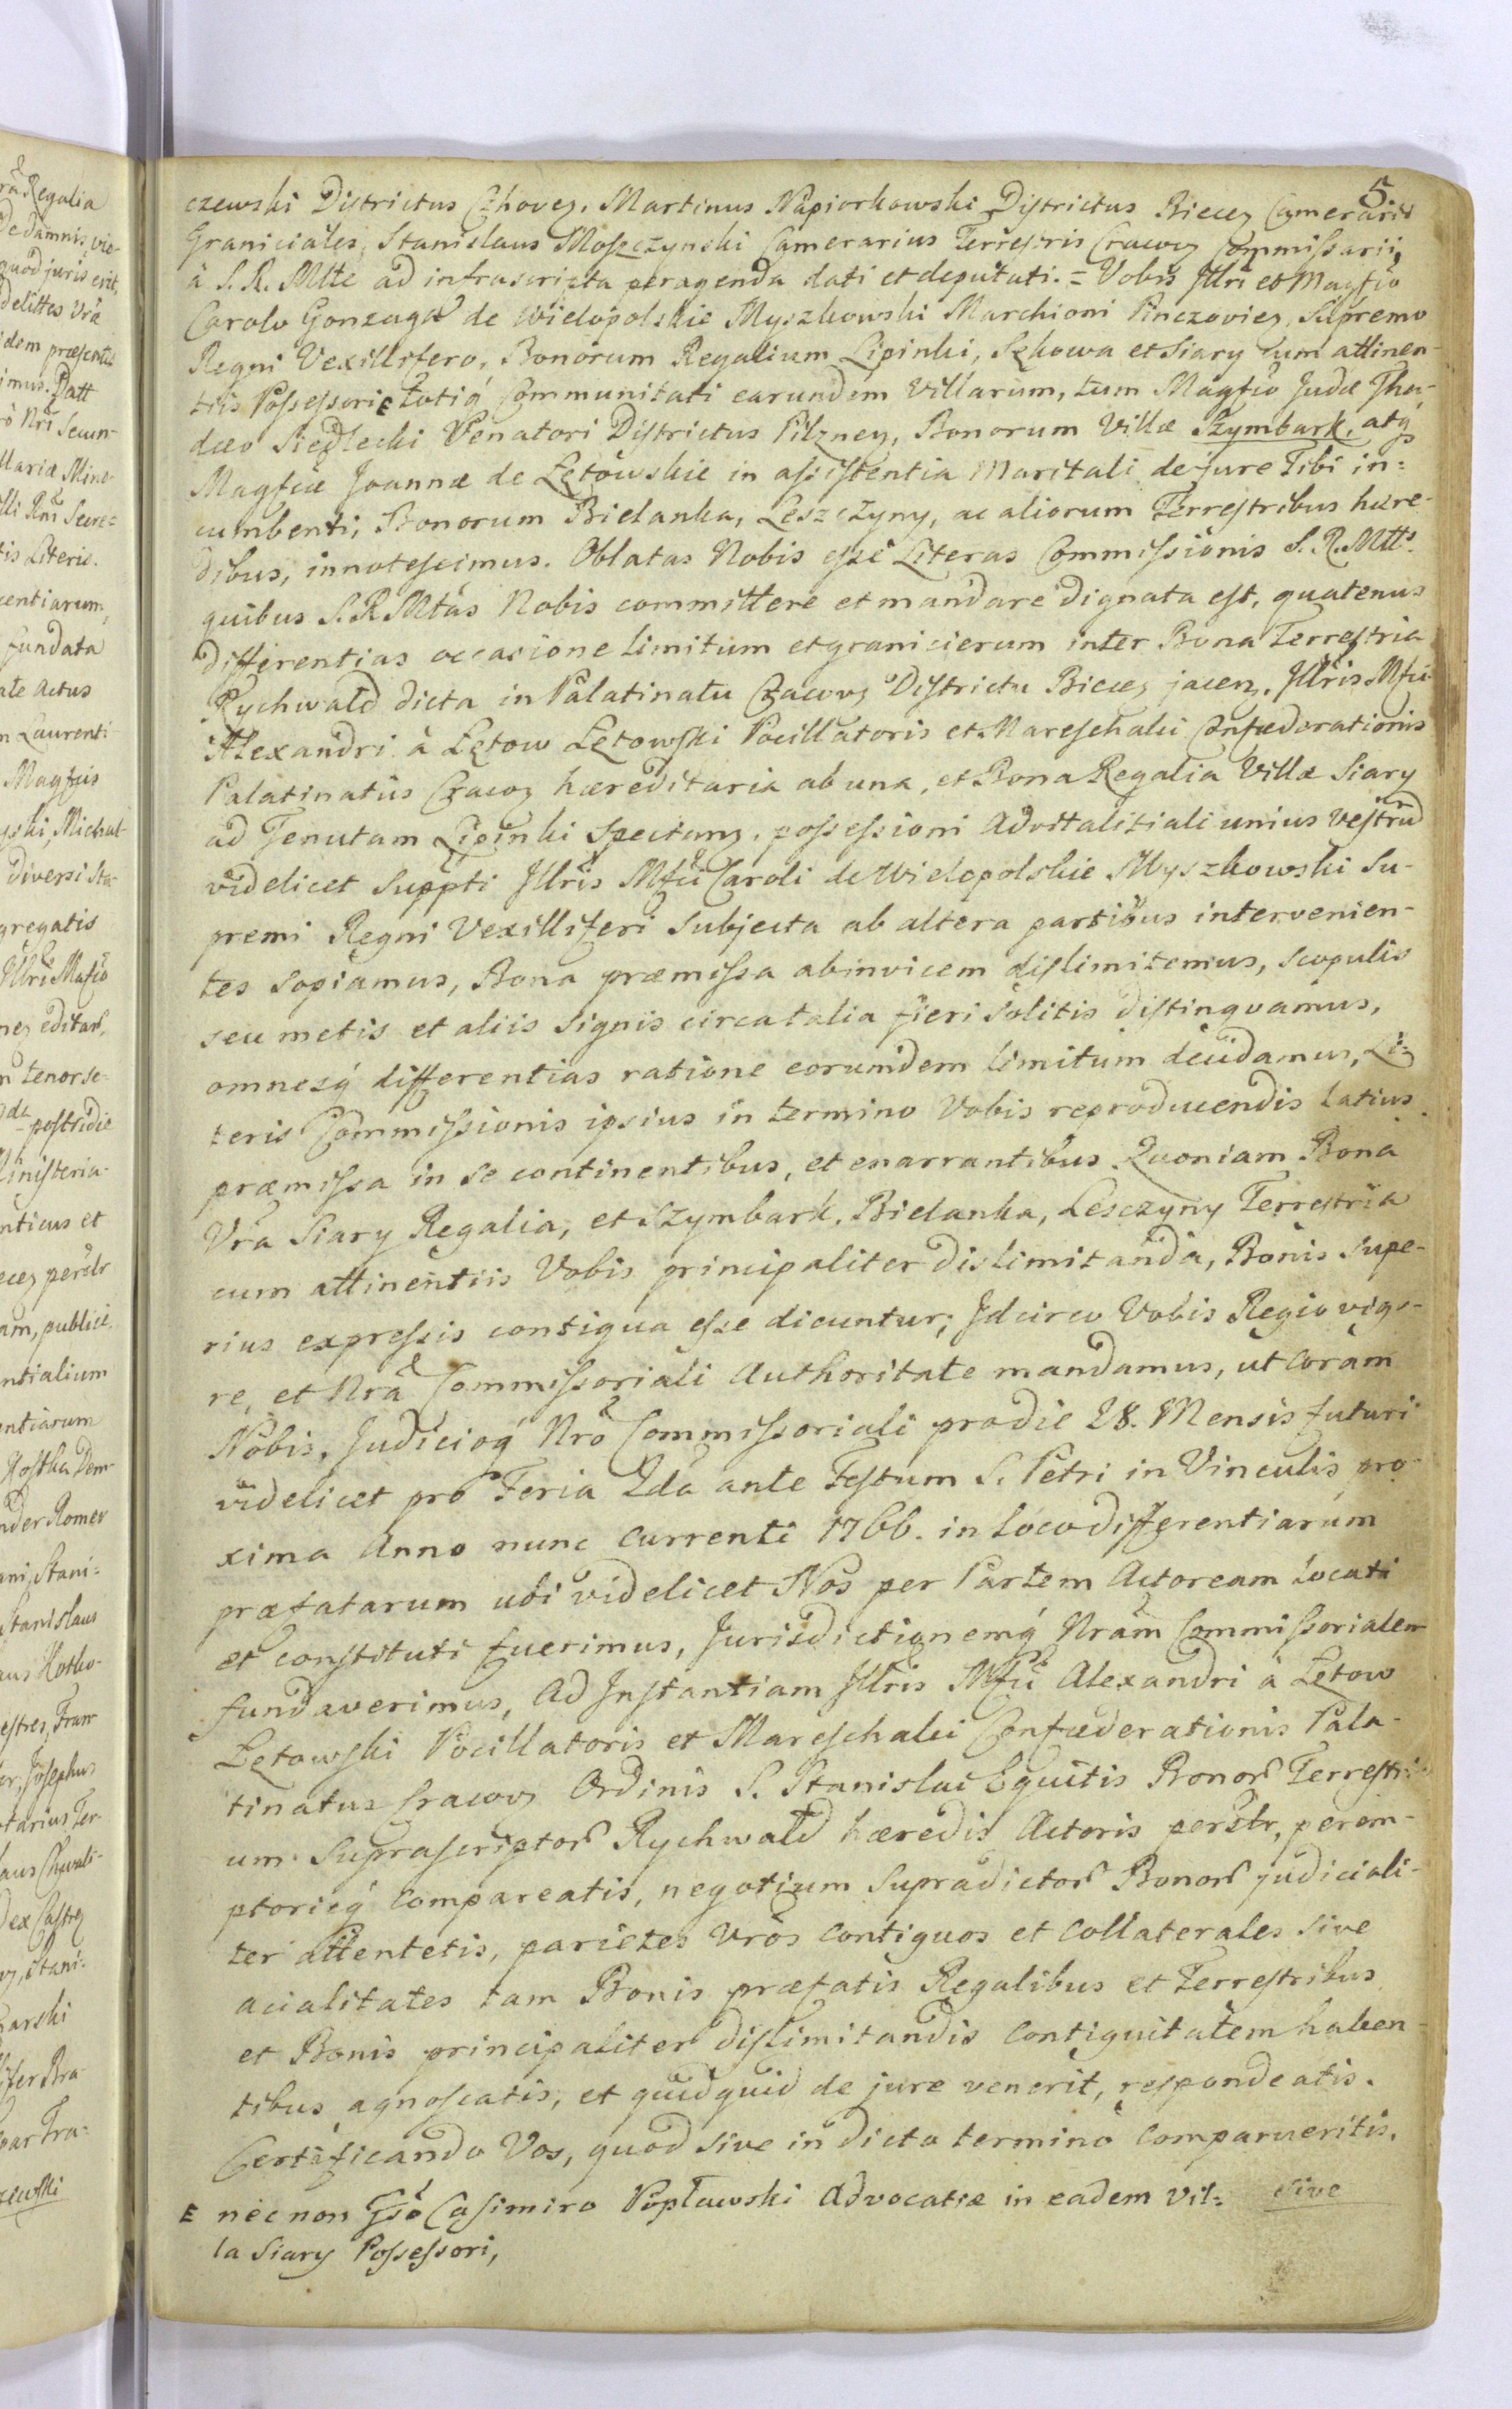 5
czewski Districtus Czhoven. Martinus Napiorkowski Districtus Biecen Camerarii
Graniciales, Stanislaus Moszczynski Camerarius Terrestris Cracov Commissarii,
à S. R. Mtte ad infrascripta peragenda dati et deputati. = Vobis Illri et Magfco
Carolo Gonzaga de Wielopolskie Myszkowski Marchioni Pinczovien, Supremo
Regni Vexillifero, Bonorum Regalium Lipinki, Sękowa et Siary cum attinen-
tiis Possessori E totiq Communitati earundem Villarum, tum Magfco Judæ Tha-
dæo Siedlecki Venatori Districtus Pilznen, Bonorum Villæ Szymbark, atq
Magficæ Joannæ de Łętowskie in assistentia Maritali de jure Tibi in=
cumbenti, Bonorum Bielanka, Leszczyny, ac aliorum Terrestribus hære-
dibus, innotescimus. Oblatas Nobis esse Literas Commissionis S. R. Mttis
quibus S. R. Mtas Nobis committere et mandare dignata est, quatenus
differentias occasione limitum et granicierum inter Bona Terrestria
Rychwald dicta in Palatinatu Cracov Districtu Biecen jacen. Illris Mfci
Alexandri à Łętow Łętowski Pocillatoris et Mareschalci Confæderationis
Palatinatus Cracov hæreditaria ab una, et Bona Regalia Villæ Siary
ad Tenutam Lipinki Spectan. possessioni Advitalitiali unius Vestrum
videlicet Suppti Illris Mfci Caroli de Wielopolskie Myszkowski Su-
premi Regni Vexilliferi Subjecta ab altera partibus intervenien-
tes sopiamus, Bona præmissa abinvicem dislimitemus, scopulis
seu metis et aliis signis circa talia fieri solitis distinguamus,
omnesq differentias ratione eorumdem limitum decidamus, Li=
teris Commissionis ipsius in termino Vobis reproducendis latius
præmissa in se continentibus, et enarrantibus. Quoniam Bona
Vra Siary Regalia, et Szymbark, Bielanka, Lesczyny Terrestria
cum attinentiis Vobis principaliter dislimitanda, Bonis supe-
rius expressis contigua esse dicuntur; Idcirco Vobis Regio vigo-
re, et Nra Commissoriali Authoritate mandamus, ut coram
Nobis, Judicioq Nro Commissoriali pro die 28. Mensis futuri
videlicet pro Feria 2da ante Festum S. Petri in Vinculis pro-
xima Anno nunc currenti 1766. in loco differentiarum
præfatarum ubi videlicet Nos per Partem Actoream locati
et constituti fuerimus, Jurisdictionemq Nram Commissorialem
fundaverimus, Ad Instantiam Illris Mfci Alexandri à Łętow
Łętowski Pocillatoris et Mareschalci Confæderationis Pala-
tinatus Cracov Ordinis S. Stanislai Equitis Bonor Terrestri-
um Suprascriptor Rychwald hæredis Actoris perstr, perem-
ptorieq compareatis, negotium Supradictor Bonor judiciali-
ter attentetis, parietes Vros contiguos et collaterales sive
acialitates tam Bonis præfatis Regalibus et Terrestribus
et Bonis principaliter dislimitandis contiguitatem haben-
tibus agnoscatis, et quidquid de jure venerit, respondeatis.
Certificando Vos, quod sive in dicto termino comparueritis,
sive
E nec non Gso Casimiro Popławski Advocatiæ in eadem Vil=
la Siary Possessori,